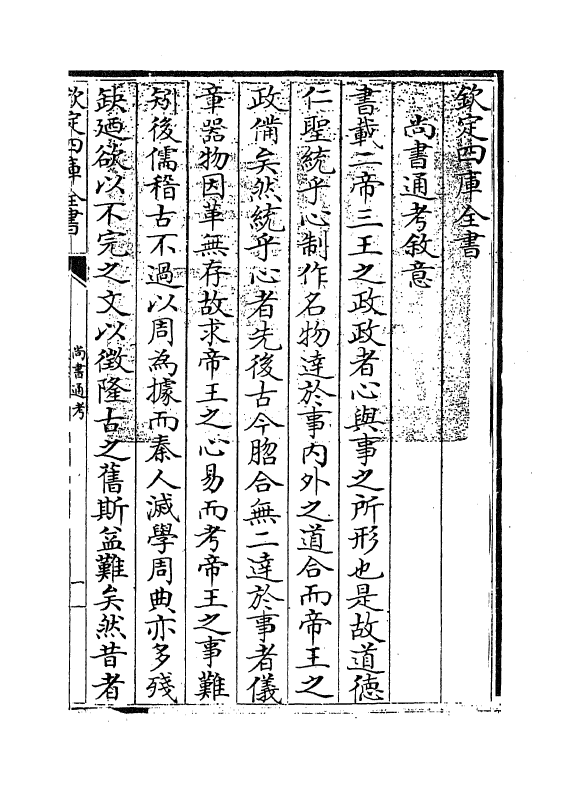 欽定四庫全書
尚書通考敘意
書載二帝三王之政政者心與事之所形也是故道德
仁聖統乎心制作名物達於事内外之道合而帝王之
政備矣然統乎心者先後古今脗合無二達於事者儀
章器物因革無存故求帝王之心易而考帝王之事難
矧後儒稽古不過以周為據而秦人滅學周典亦多殘
缺廼欲以不完之文以徴隆古之舊斯益難矣然昔者
欽定四庫全書
尚書通考
一